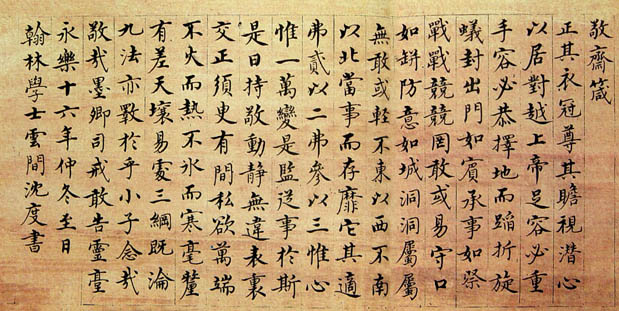 敬齋箴
正其衣冠尊其瞻視潛心
以居對越上帝足容必重
手容必恭擇地而蹈折旋
蟻封出門如賓承事如祭
戰戰兢兢罔敢或易守口
如缾防意如城洞洞屬屬
無敢或輕不東以西不南
以北當事而存靡它其適
弗貳以二弗參以三惟心
惟一萬變是監從事於斯
是曰持敬動静無違表裏
交正須臾有間私欲萬端
不火而熱不冰而寒毫釐
有差天壤易處三綱既淪
九法亦斁於乎小子念哉
敬哉墨卿司戒敢告靈臺
永樂十六年仲冬至日
翰林學士雲間沈度書